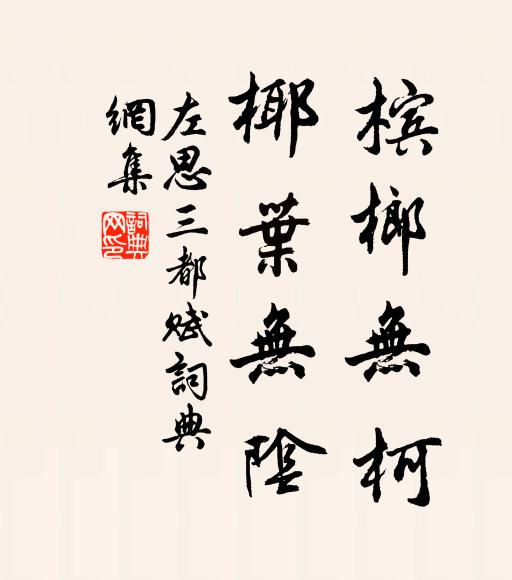 槟榔無柯
椰葉無陰
左思三都賦詞典
網集
詞典网印